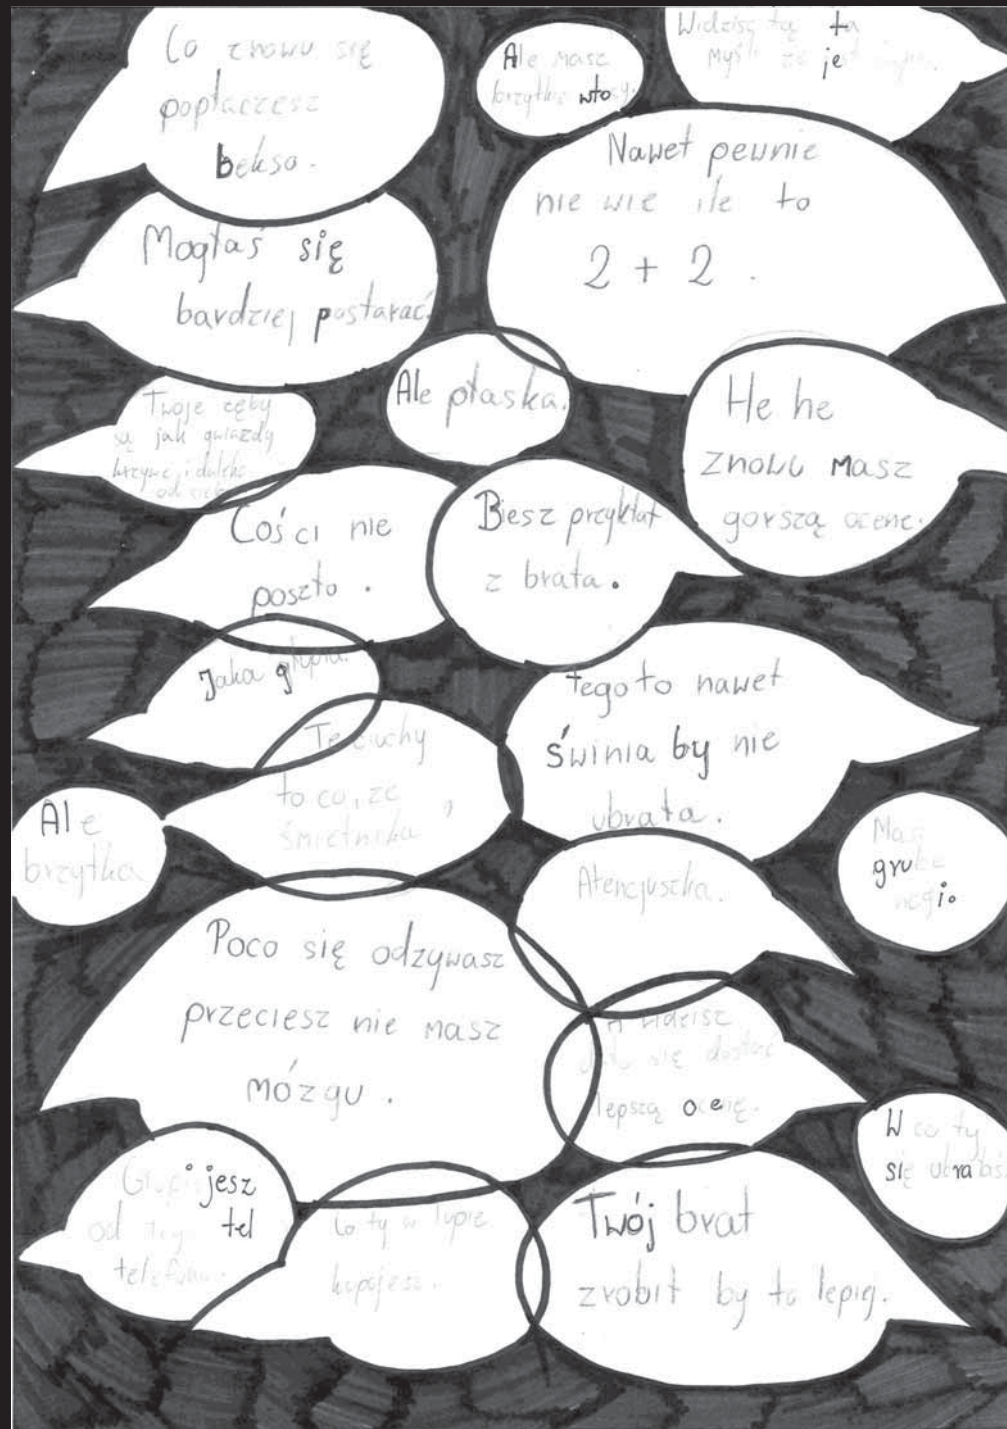 Co znowu się
popłaczesz
bekso.
Ale masz
brzytkie włosy.
Widzisz tą ta
myśli że jest
Nawet pewnie
nie wie ile to
2 + 2 .
Mogłaś się
bardziej postarać.
Twoje zęby
są jak gwiazdy
krzywe i daleko
od siebie
Ale płaska.
He he
znowu masz
gorszą ocene.
Cości nie
poszło .
Biesz przykłat
z brata.
Jaka głupia.
Te ciuchy
to co, ze
śmietnika ,
Tego to nawet
świnia by nie
ubrała.
Ale
brzytka
Masz
grube
nogi.
Atencjuszka.
Poco się odzywasz
przeciesz nie masz
mózgu .
A widzisz
się dostać
lepszą ocenę.
W co ty
się ubrałaś
jesz
od tel
telefonu.
Co ty w
kupojesz.
Twój brat
zrobił by to lepiej.